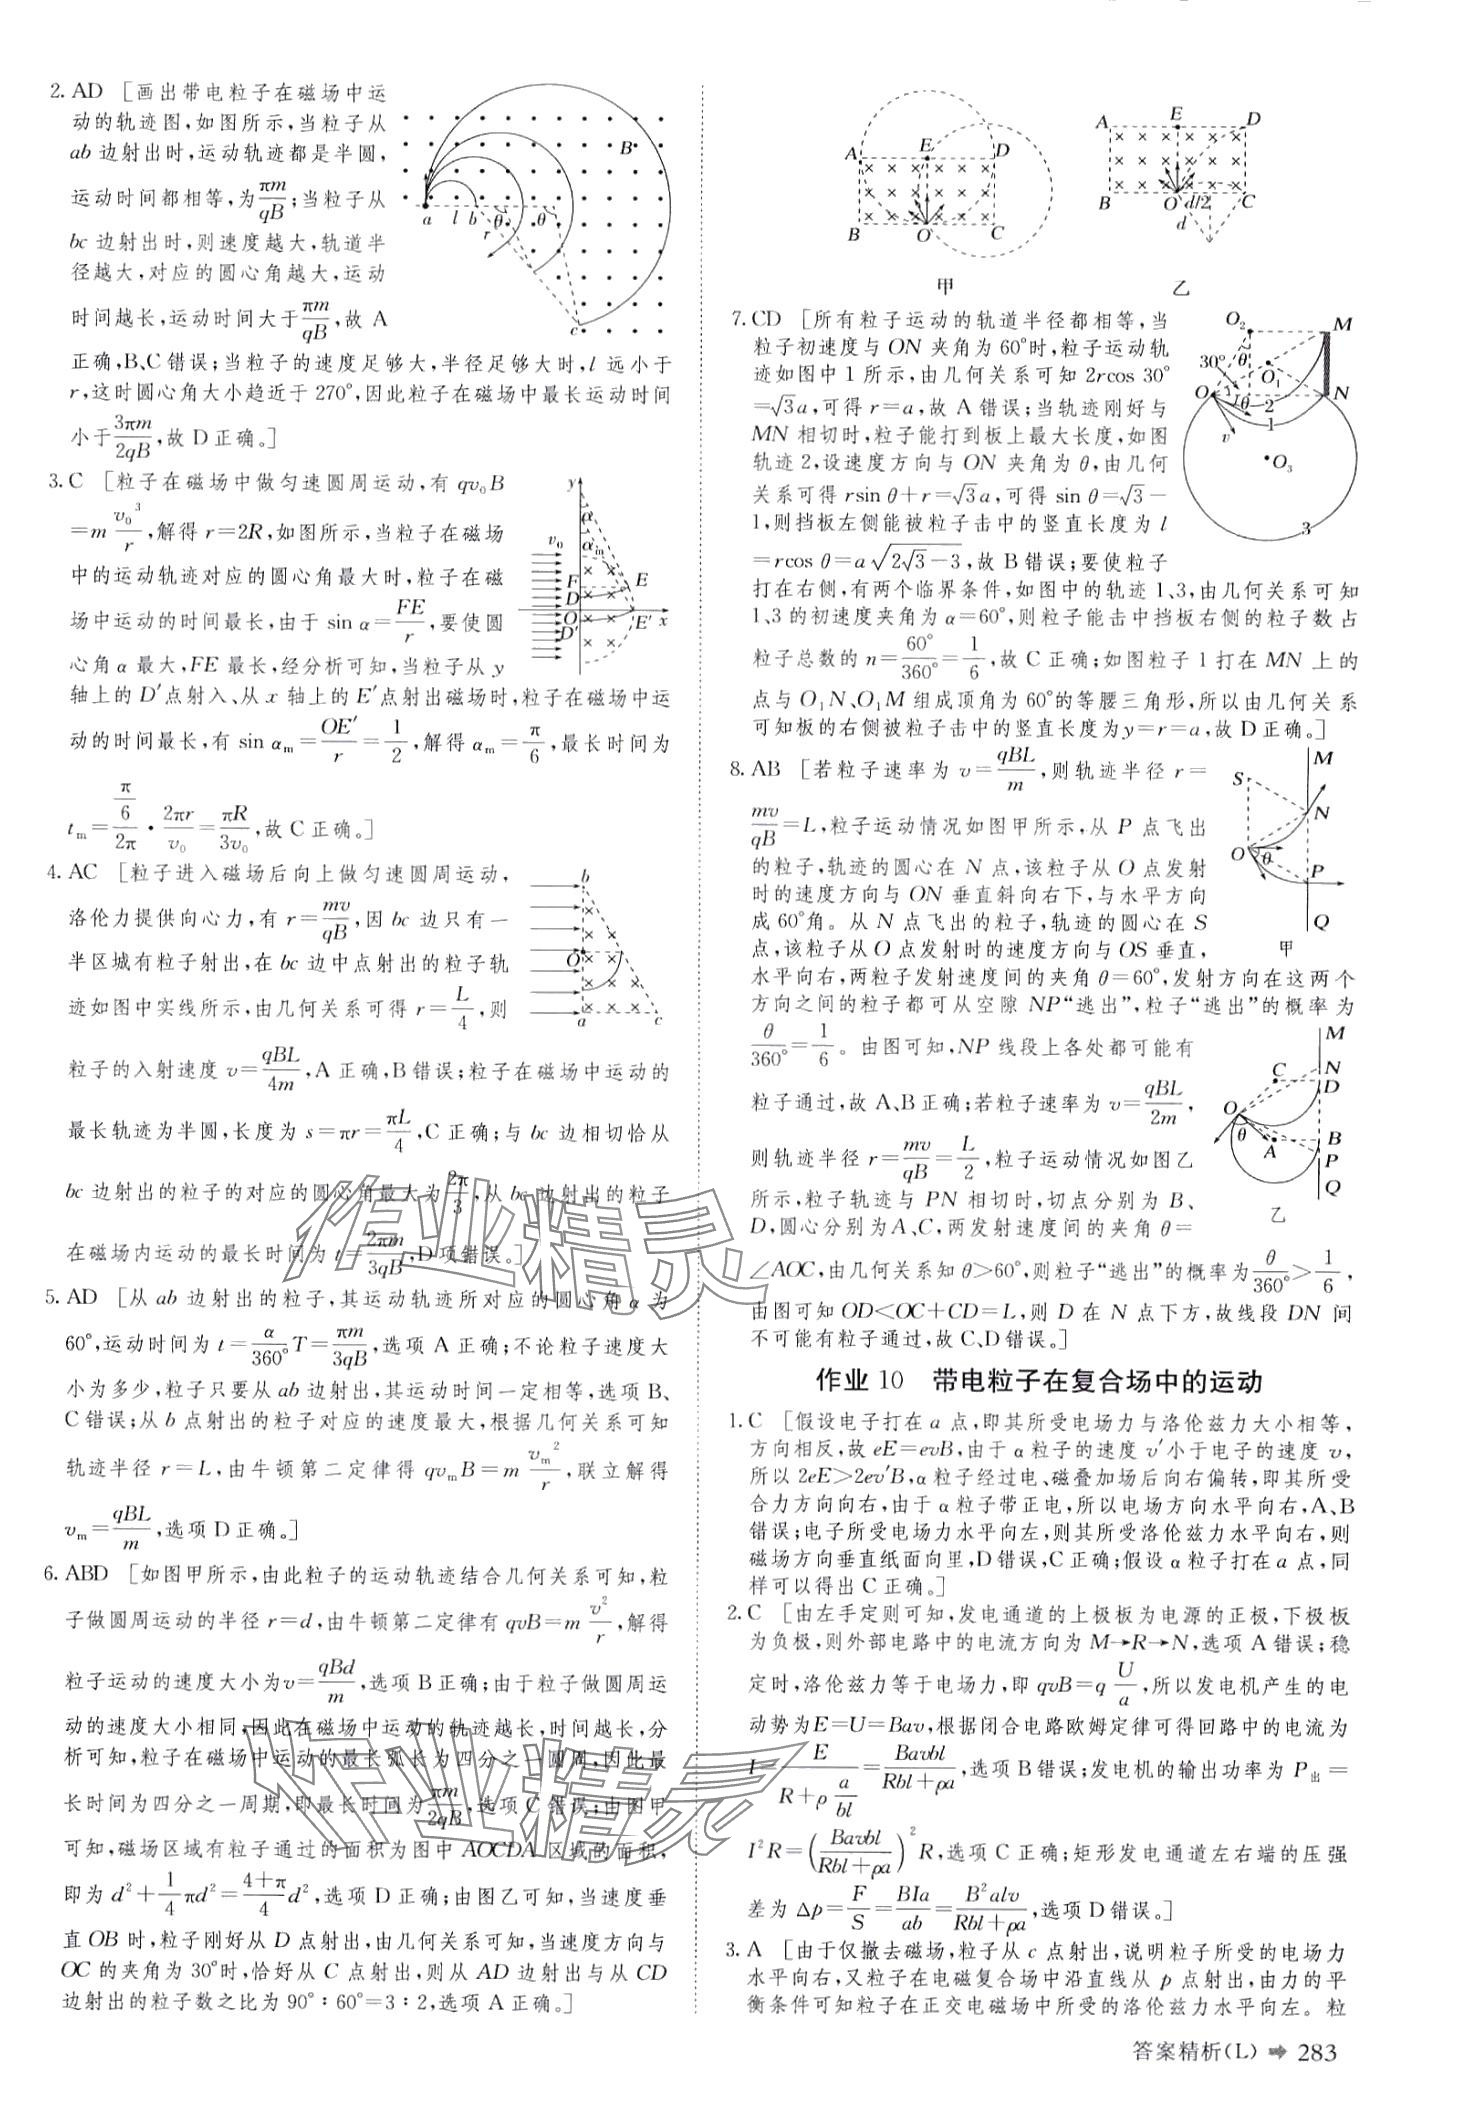 2. AD [画出带电粒子在磁场中运
动的轨迹图,如图所示,当粒子从
ab边射出时,运动轨迹都是半圆,
运动时间都相等,为πm/qB;当粒子从
bc边射出时,则速度越大,轨道半
径越大,对应的圆心角越大,运动
时间越长,运动时间大于πm/qB,故A
正确,B、C错误;当粒子的速度足够大,半径足够大时,l远小于
r,这时圆心角大小趋近于270°,因此粒子在磁场中最长运动时间
小于3πm/2qB,故D正确。]
B
a l b θ θ
r
c
3. C [粒子在磁场中做匀速圆周运动,有qv₀B
=m v₀³/r,解得r=2R,如图所示,当粒子在磁场
中的运动轨迹对应的圆心角最大时,粒子在磁
场中运动的时间最长,由于sin α=FE/r,要使圆
心角α最大,FE最长,经分析可知,当粒子从y
轴上的D′点射入、从x轴上的E′点射出磁场时,粒子在磁场中运
动的时间最长,有sin αm=OE′/r=1/2,解得αm=π/6,最长时间为
tm=(π/6)/2π·2πr/v₀=πR/3v₀,故C正确。]
y
α
v₀ αm
F E
D
O E′ x
D′
4. AC [粒子进入磁场后向上做匀速圆周运动,
洛伦力提供向心力,有r=mv/qB,因bc边只有一
半区域有粒子射出,在bc边中点射出的粒子轨
迹如图中实线所示,由几何关系可得r=L/4,则
粒子的入射速度v=qBL/4m,A正确,B错误;粒子在磁场中运动的
最长轨迹为半圆,长度为s=πr=πL/4,C正确;与bc边相切恰从
bc边射出的粒子的对应的圆心角最大为2π/3,从bc边射出的粒子
在磁场内运动的最长时间为t=2πm/3qB,D项错误。]
b
O
a c
5. AD [从ab边射出的粒子,其运动轨迹所对应的圆心角α为
60°,运动时间为t=α/360°T=πm/3qB,选项A正确;不论粒子速度大
小为多少,粒子只要从ab边射出,其运动时间一定相等,选项B、
C错误;从b点射出的粒子对应的速度最大,根据几何关系可知
轨迹半径r=L,由牛顿第二定律得qvmB=m vm²/r,联立解得
vm=qBL/m,选项D正确。]
6. ABD [如图甲所示,由此粒子的运动轨迹结合几何关系可知,粒
子做圆周运动的半径r=d,由牛顿第二定律有qvB=m v²/r,解得
粒子运动的速度大小为v=qBd/m,选项B正确;由于粒子做圆周运
动的速度大小相同,因此在磁场中运动的轨迹越长,时间越长,分
析可知,粒子在磁场中运动的最长弧长为四分之一圆周,因此最
长时间为四分之一周期,即最长时间为πm/2qB,选项C错误;由图甲
可知,磁场区域有粒子通过的面积为图中AOCDA区域的面积,
即为d²+1/4πd²=(4+π)/4 d²,选项D正确;由图乙可知,当速度垂
直OB时,粒子刚好从D点射出,由几何关系可知,当速度方向与
OC的夹角为30°时,恰好从C点射出,则从AD边射出与从CD
边射出的粒子数之比为90°∶60°=3∶2,选项A正确。]
A E D
B O C
甲
A E D
B O d/2 C
d
乙
7. CD [所有粒子运动的轨道半径都相等,当
粒子初速度与ON夹角为60°时,粒子运动轨
迹如图中1所示,由几何关系可知2rcos 30°
=√3a,可得r=a,故A错误;当轨迹刚好与
MN相切时,粒子能打到板上最大长度,如图
轨迹2,设速度方向与ON夹角为θ,由几何
关系可得rsin θ+r=√3a,可得sin θ=√3-
1,则挡板左侧能被粒子击中的竖直长度为l
=rcos θ=a√(2√3-3),故B错误;要使粒子
打在右侧,有两个临界条件,如图中的轨迹1、3,由几何关系可知
1、3的初速度夹角为α=60°,则粒子能击中挡板右侧的粒子数占
粒子总数的n=60°/360°=1/6,故C正确;如图粒子1打在MN上的
点与O₁N、O₁M组成顶角为60°的等腰三角形,所以由几何关系
可知板的右侧被粒子击中的竖直长度为y=r=a,故D正确。]
O₂ M
30° θ
O₁
O θ 2 N
v 1
O₃
3
8. AB [若粒子速率为v=qBL/m,则轨迹半径r=
mv/qB=L,粒子运动情况如图甲所示,从P点飞出
的粒子,轨迹的圆心在N点,该粒子从O点发射
时的速度方向与ON垂直斜向右下,与水平方向
成60°角。从N点飞出的粒子,轨迹的圆心在S
点,该粒子从O点发射时的速度方向与OS垂直,
水平向右,两粒子发射速度间的夹角θ=60°,发射方向在这两个
方向之间的粒子都可从空隙NP“逃出”,粒子“逃出”的概率为
θ/360°=1/6。由图可知,NP线段上各处都可能有
粒子通过,故A、B正确;若粒子速率为v=qBL/2m,
则轨迹半径r=mv/qB=L/2,粒子运动情况如图乙
所示,粒子轨迹与PN相切时,切点分别为B、
D,圆心分别为A、C,两发射速度间的夹角θ=
∠AOC,由几何关系知θ>60°,则粒子“逃出”的概率为θ/360°>1/6,
由图可知OD<OC+CD=L,则D在N点下方,故线段DN间
不可能有粒子通过,故C、D错误。]
M
S
N
O θ
P
Q
甲
M
C N
D
O
θ A B
P
Q
乙
作业10 带电粒子在复合场中的运动
1. C [假设电子打在a点,即其所受电场力与洛伦兹力大小相等,
方向相反,故eE=evB,由于α粒子的速度v′小于电子的速度v,
所以2eE>2ev′B,α粒子经过电、磁叠加场后向右偏转,即其所受
合力方向向右,由于α粒子带正电,所以电场方向水平向右,A、B
错误;电子所受电场力水平向左,则其所受洛伦兹力水平向右,则
磁场方向垂直纸面向里,D错误,C正确;假设α粒子打在a点,同
样可以得出C正确。]
2. C [由左手定则可知,发电通道的上极板为电源的正极,下极板
为负极,则外部电路中的电流方向为M→R→N,选项A错误;稳
定时,洛伦兹力等于电场力,即qvB=q U/a,所以发电机产生的电
动势为E=U=Bav,根据闭合电路欧姆定律可得回路中的电流为
I=E/(R+ρ a/bl)=Bavbl/(Rbl+ρa),选项B错误;发电机的输出功率为P出=
I²R=(Bavbl/(Rbl+ρa))²R,选项C正确;矩形发电通道左右端的压强
差为Δp=F/S=BIa/ab=B²alv/(Rbl+ρa),选项D错误。]
3. A [由于仅撤去磁场,粒子从c点射出,说明粒子所受的电场力
水平向右,又粒子在电磁复合场中沿直线从p点射出,由力的平
衡条件可知粒子在正交电磁场中所受的洛伦兹力水平向左。粒
答案精析(L) ➡ 283
作业精灵
作业精灵